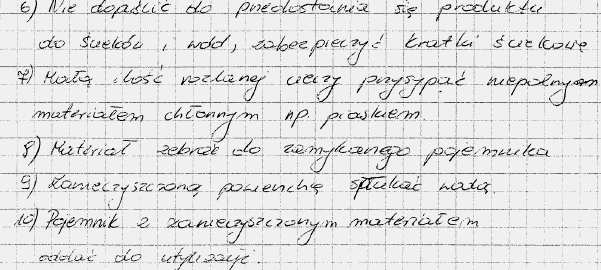 6) Nie dopaścić do przedostania się produktu
do ścieków i wód, zabezpieczyć kratki ściekowe
7) Małą ilość rozlanej cieczy przysypać niepalnym
materiałem chłonnym np. piaskiem.
8) Materiał zebrać do zamykanego pojemnika
9) Zanieczyszczoną powierzchnię spłukać wodą.
10) Pojemnik z zanieczyszczonym materiałem
oddać do utylizacji.